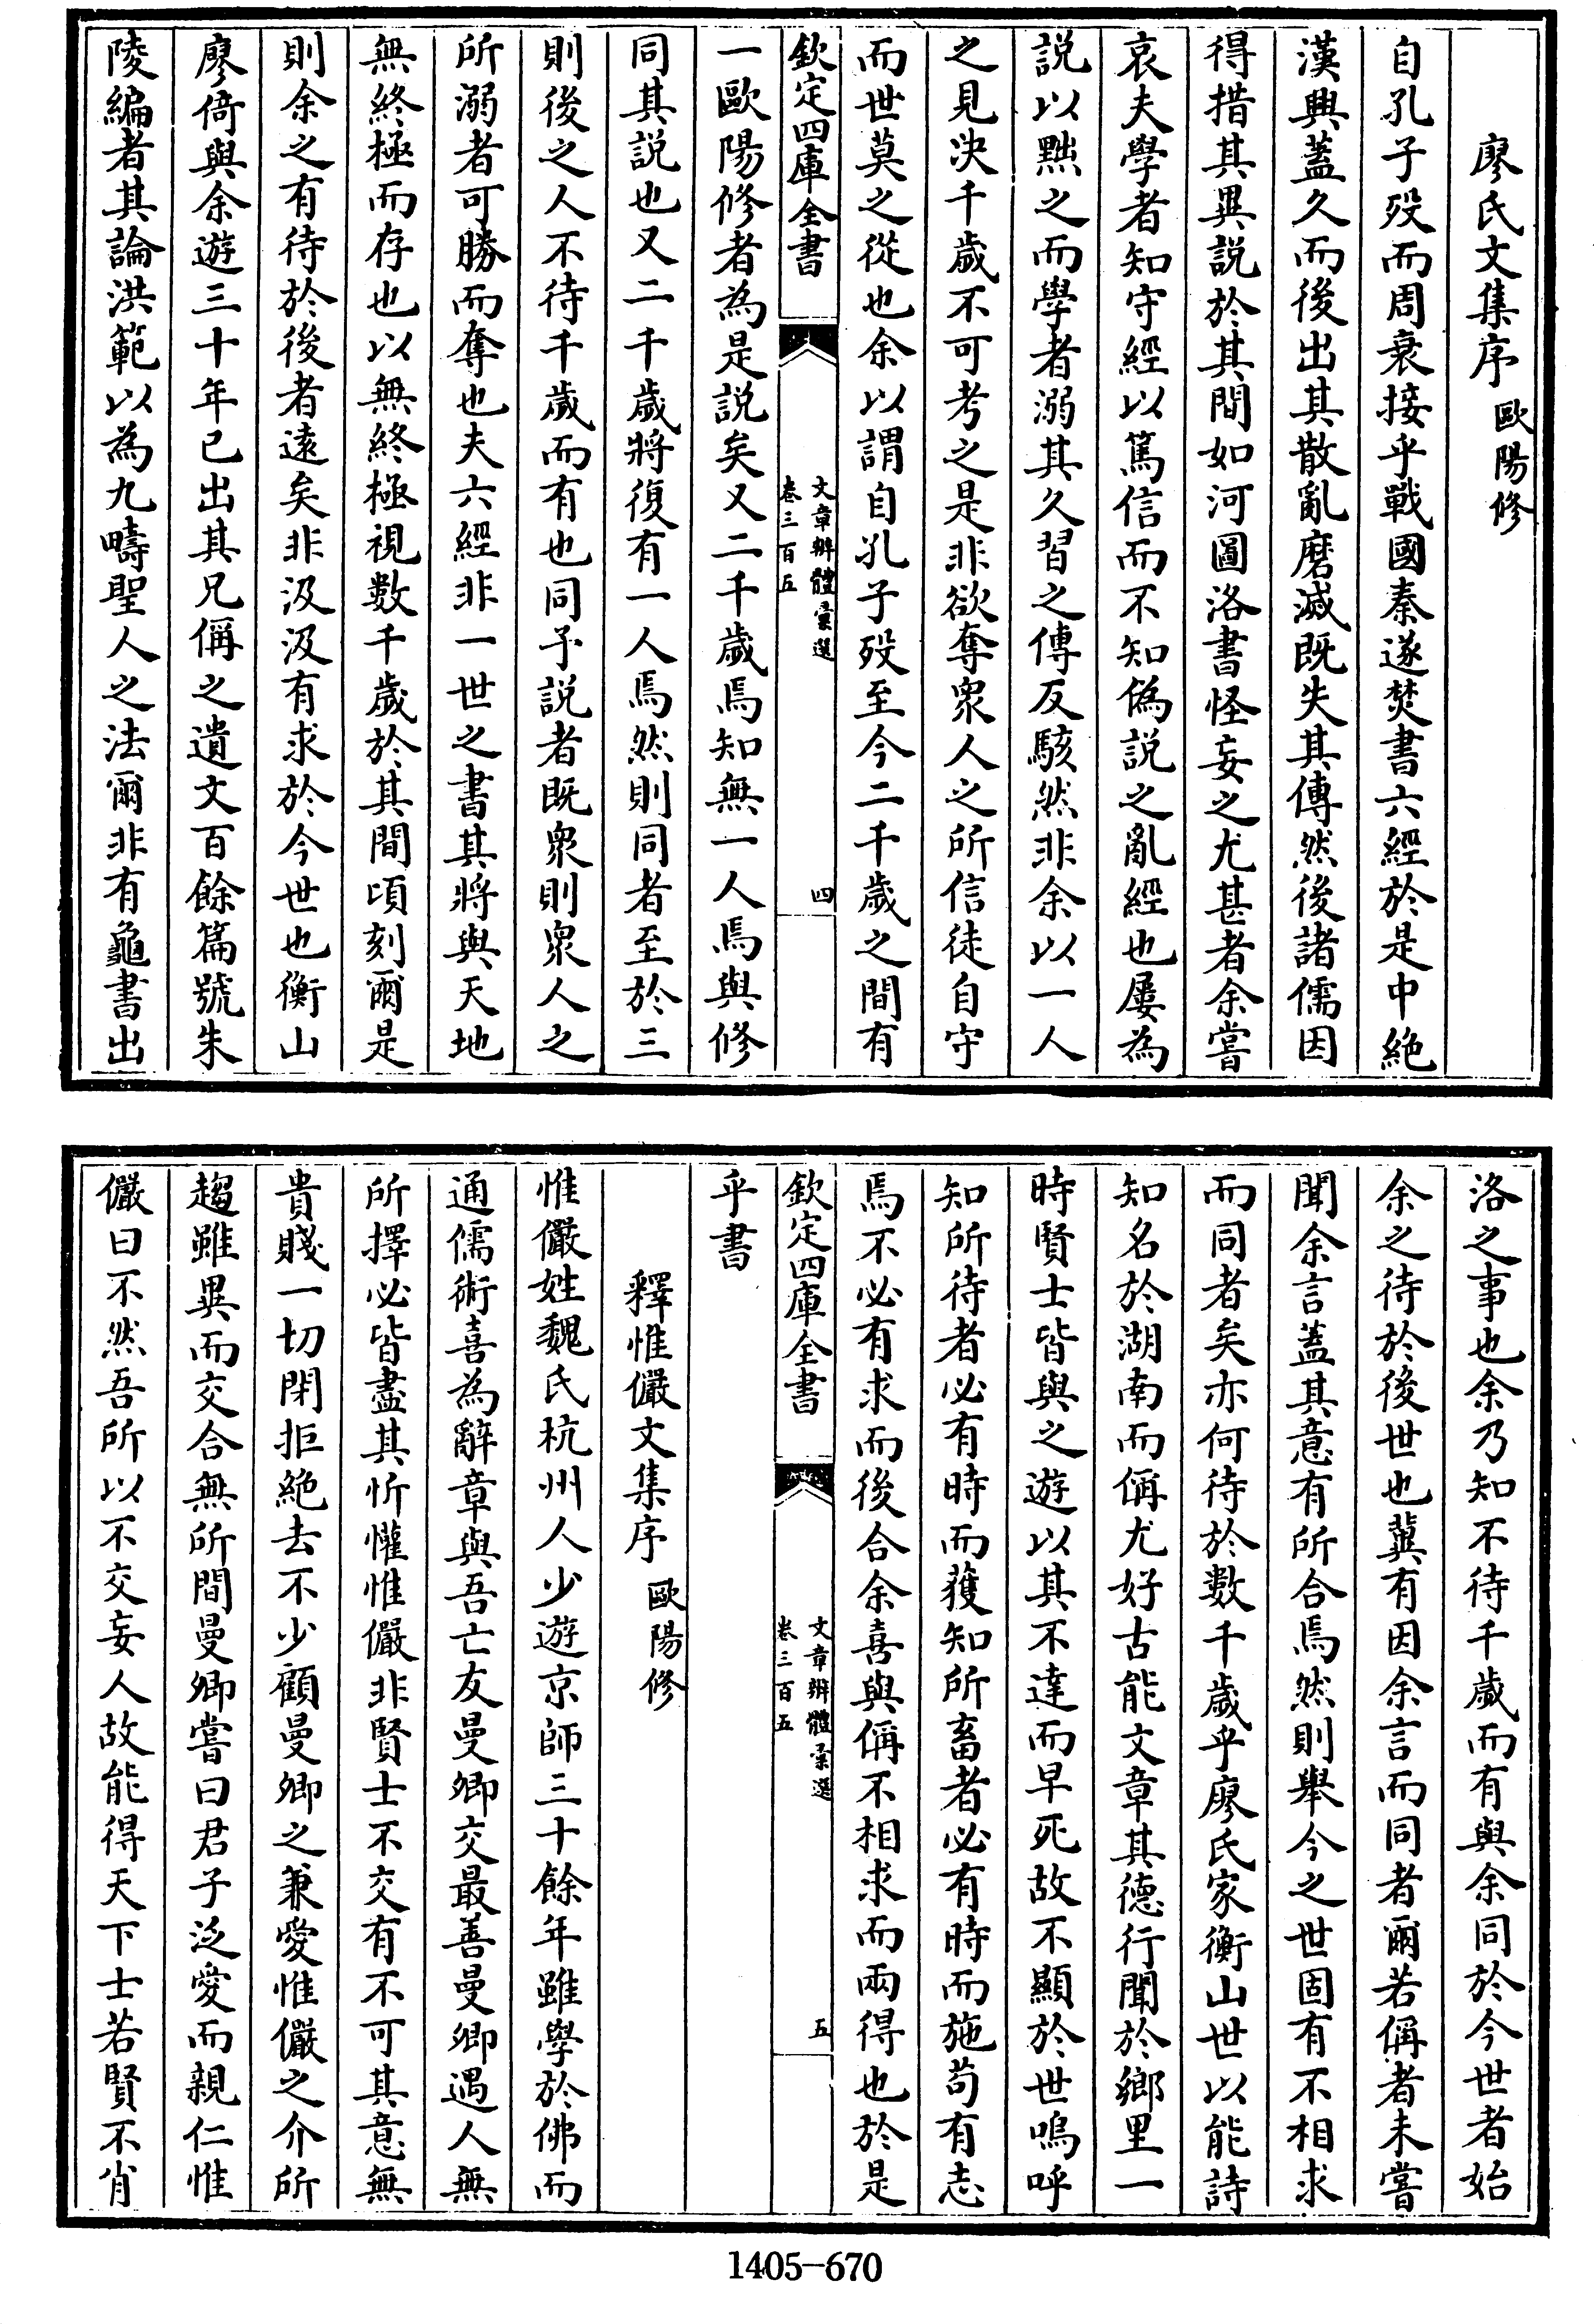 廖氏文集序 歐陽修
自孔子歿而周衰接乎戰國秦遂焚書六經於是中絶
漢興蓋久而後出其散亂磨滅既失其傳然後諸儒因
得措其異説於其間如河圖洛書怪妄之尤甚者余嘗
哀夫學者知守經以篤信而不知偽説之亂經也屢為
説以黜之而學者溺其久習之傳反駭然非余以一人
之見决千歲不可考之是非欲奪衆人之所信徒自守
而世莫之從也余以謂自孔子歿至今二千歲之間有
欽定四庫全書
文章辨體彚選
卷三百五
四
一歐陽修者為是説矣又二千歲焉知無一人焉與修
同其説也又二千歲將復有一人焉然則同者至於三
則後之人不待千歲而有也同予説者既衆則衆人之
所溺者可勝而奪也夫六經非一世之書其將與天地
無終極而存也以無終極視数千歲於其間頃刻爾是
則余之有待於後者遠矣非汲汲有求於今世也衡山
廖倚與余遊三十年已出其兄偁之遺文百餘篇號朱
陵編者其論洪範以為九疇聖人之法爾非有龜書出
洛之事也余乃知不待千歲而有與余同於今世者始
余之待於後世也冀有因余言而同者爾若偁者未嘗
聞余言蓋其意有所合焉然則舉今之世固有不相求
而同者矣亦何待於数千歲乎廖氏家衡山世以能詩
知名於湖南而偁尤好古能文章其德行聞於鄉里一
時賢士皆與之遊以其不達而早死故不顯於世嗚呼
知所待者必有時而獲知所畜者必有時而施茍有志
焉不必有求而後合余喜與偁不相求而兩得也於是
欽定四庫全書
文章辨體彚選
卷三百五
五
乎書
釋惟儼文集序 歐陽修
惟儼姓魏氏杭州人少遊京師三十餘年雖學於佛而
通儒術喜為辭章與吾亡友曼卿交最善曼卿遇人無
所擇必皆盡其忻懽惟儼非賢士不交有不可其意無
貴賤一切閉拒絶去不少顧曼卿之兼愛惟儼之介所
趨雖異而交合無所間曼卿嘗曰君子泛愛而親仁惟
儼曰不然吾所以不交妄人故能得天下士若賢不肖
1405-670